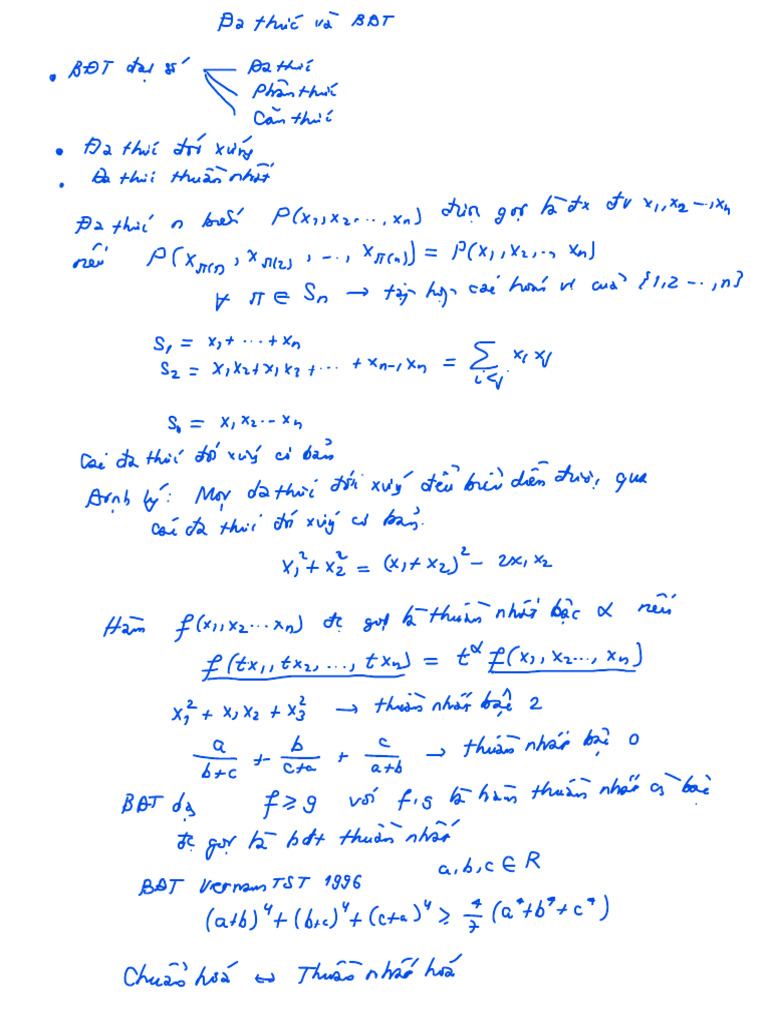 Đa thức và BĐT
• BĐT đại số
Đa thức
Phân thức
Căn thức
• Đa thức đối xứng
• Đa thức thuần nhất
Đa thức n biến P(x₁, x₂, ..., xₙ) được gọi là đx đv x₁, x₂ ..., xₙ
nếu P(x_π(1), x_π(2), ..., x_π(n)) = P(x₁, x₂, .., xₙ)
∀ π ∈ Sₙ → tập hợp các hoán vị của {1, 2 ..., n}
S₁ = x₁ + ... + xₙ
S₂ = x₁x₂ + x₁x₃ + ... + xₙ₋₁xₙ = ∑_{i<j} xᵢxⱼ
Sₙ = x₁x₂...xₙ
Các đa thức đối xứng cơ bản
Định lý: Mọi đa thức đối xứng đều biểu diễn được qua
các đa thức đối xứng cơ bản.
x₁² + x₂² = (x₁ + x₂)² - 2x₁x₂
Hàm f(x₁, x₂ ... xₙ) đc gọi là thuần nhất bậc α nếu
f(tx₁, tx₂, ..., txₙ) = t^α f(x₁, x₂ ..., xₙ)
x₁² + x₁x₂ + x₃² → thuần nhất bậc 2
a/(b+c) + b/(c+a) + c/(a+b) → thuần nhất bậc 0
BĐT dạng f ≥ g với f, g là hàm thuần nhất cùng bậc
đc gọi là bđt thuần nhất
a, b, c ∈ R
BĐT Vietnam TST 1996
(a+b)⁴ + (b+c)⁴ + (c+a)⁴ ≥ 4/7 (a⁴ + b⁴ + c⁴)
Chuẩn hoá ⇔ Thuần nhất hoá